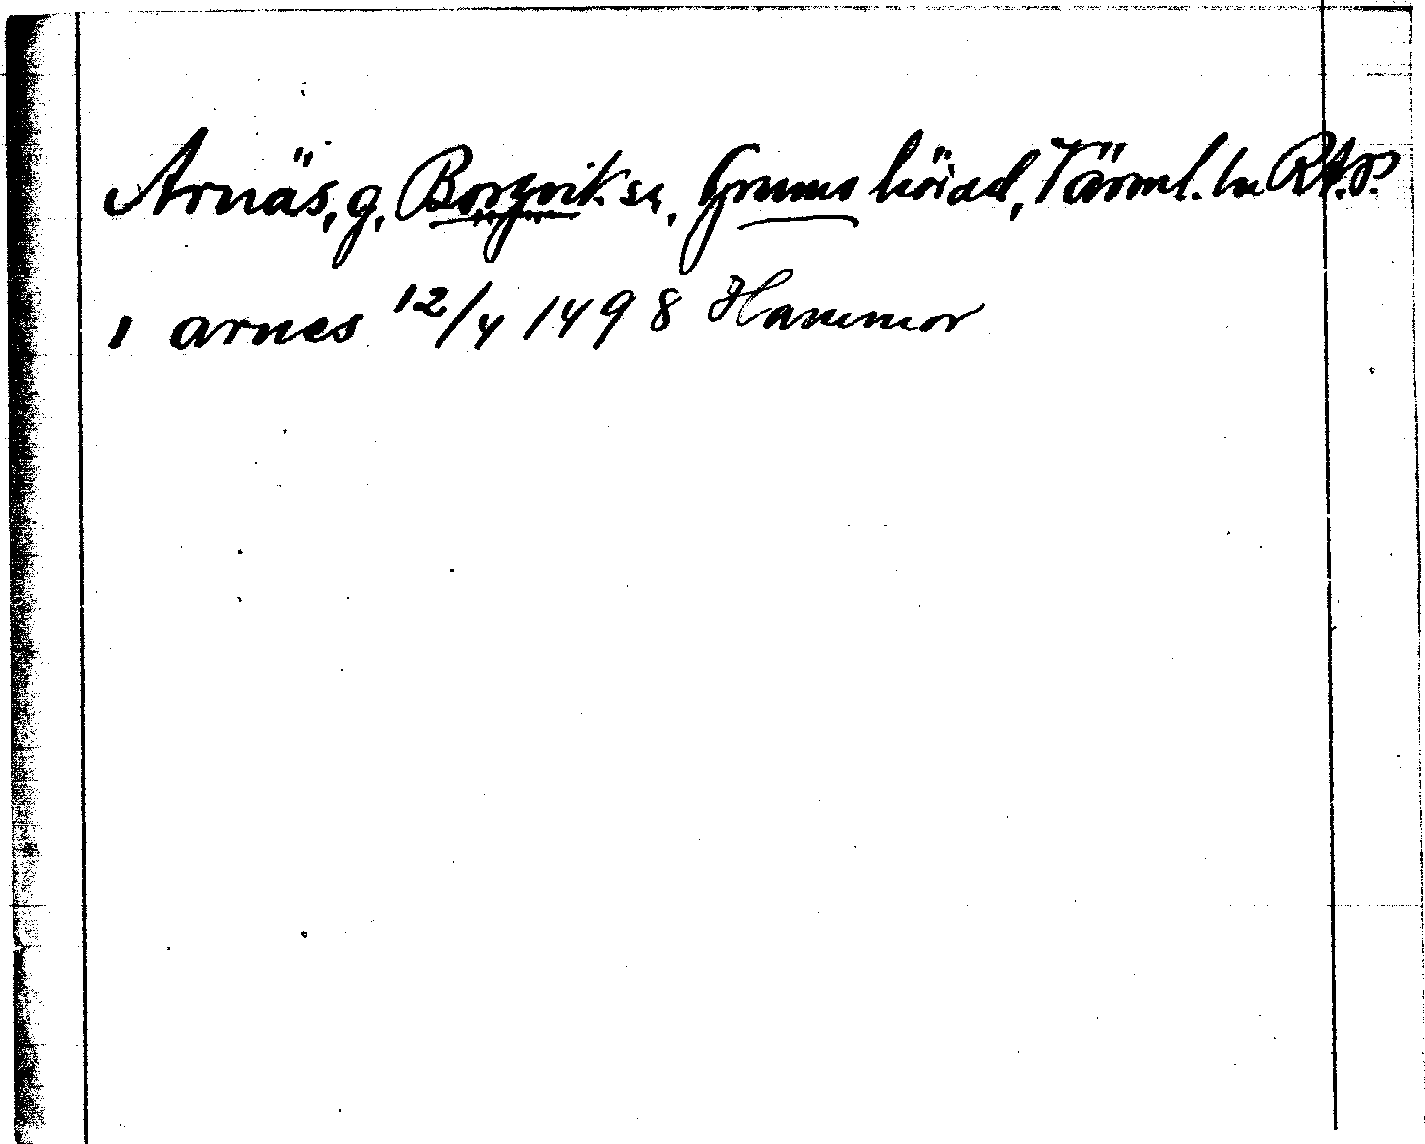 Arnäs, g, Borgvik sn, Grums härad, Värml. ln RAP.
i arnes 12/4 1498 Hammor